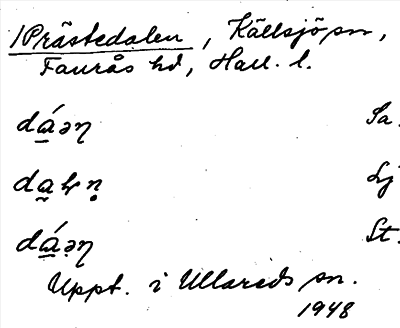 /Prästedalen, Källsjö sn,
Faurås hd, Hall. l.
dá̱əɳ Sa.
Lj
St.
Uppt. i Ullareds sn.
1948